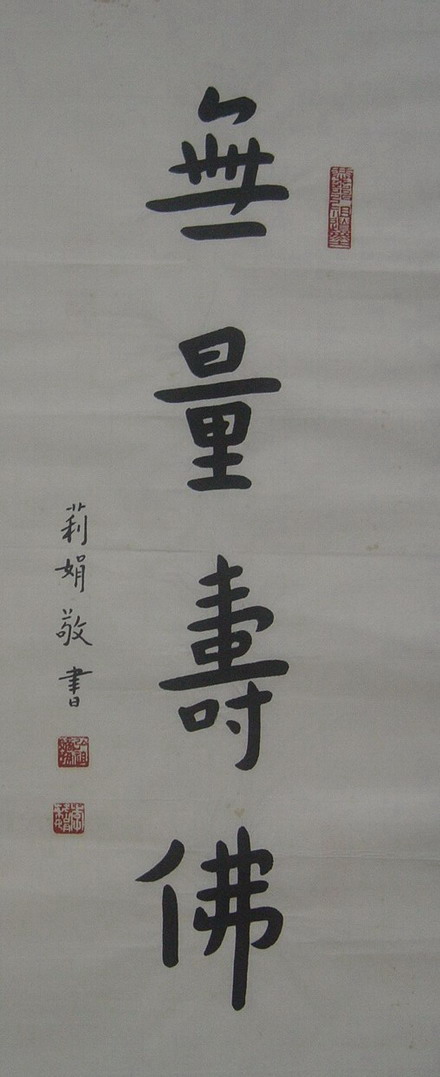 無量壽佛
莉娟敬書